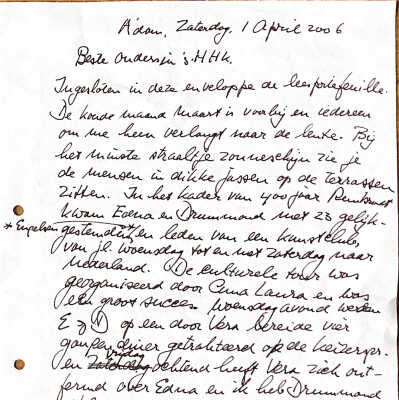 A'dam, Zaterdag, 1 April 2006
Beste ouders in 's-HHK.
Ingesloten in deze enveloppe de leesportefeuille.
De koude maand Maart is voorbij en iedereen
om me heen verlangt naar de lente. Bij
het minste straaltje zonneschijn zie je
de mensen in dikke jassen op de terrassen
zitten. In het kader van 400 jaar Rembrandt
kwam Edna en Drummond met 23 gelijk-
* Engelsen gestemden* en leden van een kunstclub,
van jl. woensdag tot en met zaterdag naar
Nederland. De culturele tour was
georganiseerd door Laura en was
een groot succes. Woensdagavond werden
E & D op een door Vera bereide vier
gangen diner getrakteerd op de Keizersgr.
en Zaterdag vrijdag ochtend heeft Vera zich ont-
fermd over Edna en ik heb Drummond